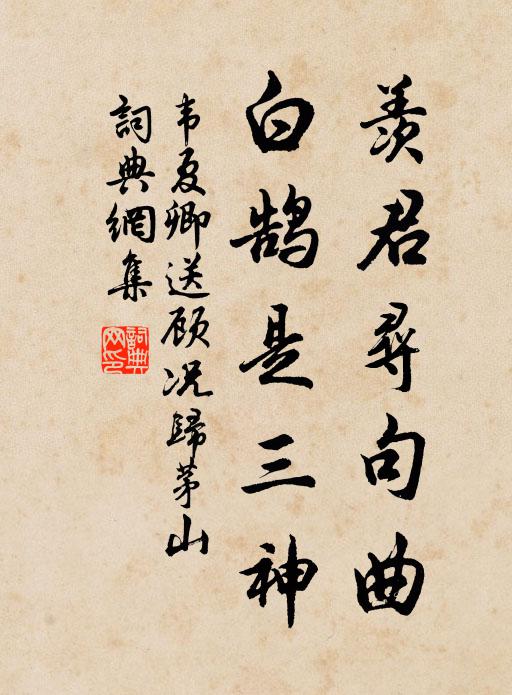 羡君尋句曲
白鹄是三神
韦夏卿送顾况歸茅山
詞典網集
詞典网印